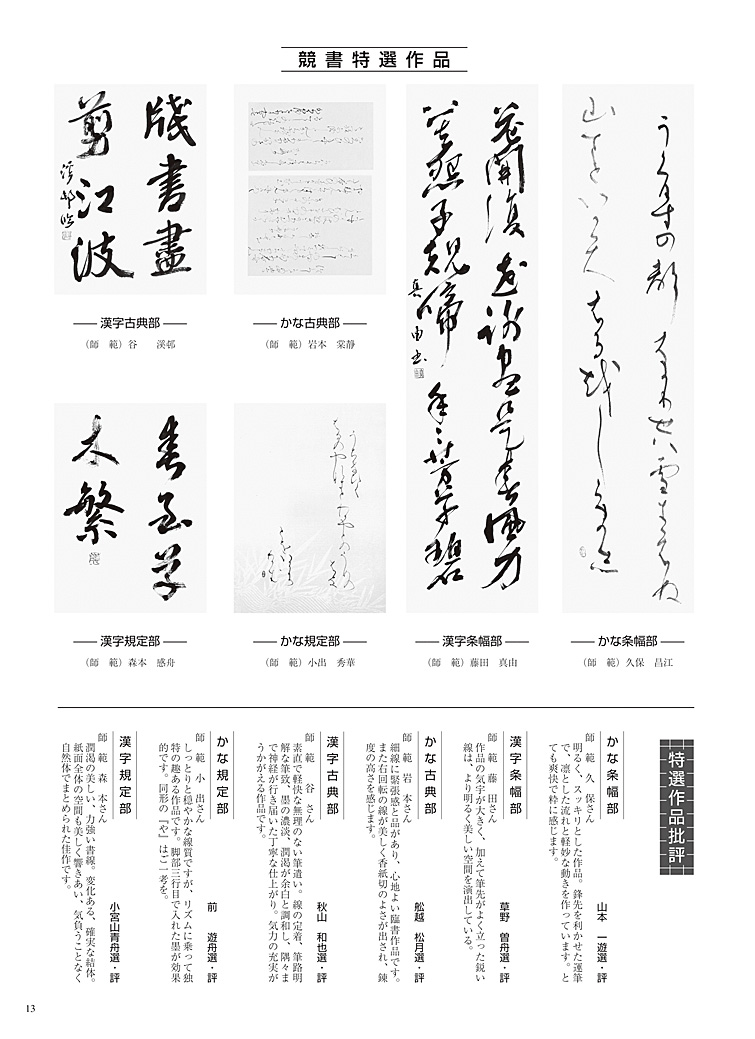 競書特選作品
牋書盡
剪江波
漢字古典部
（師　範）谷　　渓邨
かな古典部
（師　範）岩本　棠静
漢字規定部
（師　範）森本　感舟
かな規定部
（師　範）小出　秀華
漢字条幅部
（師　範）藤田　真由
かな条幅部
（師　範）久保　昌江
特選作品批評
かな条幅部
山本　一遊選・評
師　範　久　保さん
明るく、スッキリとした作品。鋒先を利かせた運筆
で、凛とした流れと軽妙な動きを作っています。と
ても爽快で粋に感じます。
漢字条幅部
草野　曽舟選・評
師　範　藤　田さん
作品の気宇が大きく、加えて筆先がよく立った鋭い
線は、より明るく美しい空間を演出している。
かな古典部
舩越　松月選・評
師　範　岩　本さん
細線に緊張感と品があり、心地よい臨書作品です。
また右回転の線が美しく香紙切のよさが出され、錬
度の高さを感じます。
漢字古典部
秋山　和也選・評
師　範　　谷　さん
素直で軽快な無理のない筆遣い。線の定着、筆路明
解な筆致、墨の濃淡、潤渇が余白と調和し、隅々ま
で神経が行き届いた丁寧な仕上がり。気力の充実が
うかがえる作品です。
かな規定部
前　　遊舟選・評
師　範　小　出さん
しっとりと穏やかな線質ですが、リズムに乗って独
特の趣ある作品です。脚部三行目で入れた墨が効果
的です。同形の「や」はご一考を。
漢字規定部
小宮山青舟選・評
師　範　森　本さん
潤渇の美しい、力強い書線。変化ある、確実な結体。
紙面全体の空間も美しく響きあい、気負うことなく
自然体でまとめられた佳作です。
13